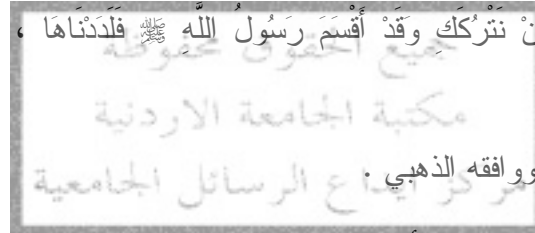 نْ نَتْرُكَكِ وَقَدْ أَقْسَمَ رَسُولُ اللَّهِ ﷺ فَلَدَدْنَاهَا ،
جميع الحقوق محفوظة
مكتبة الجامعة الاردنية
ووافقه الذهبي .
مركز ايداع الرسائل الجامعية